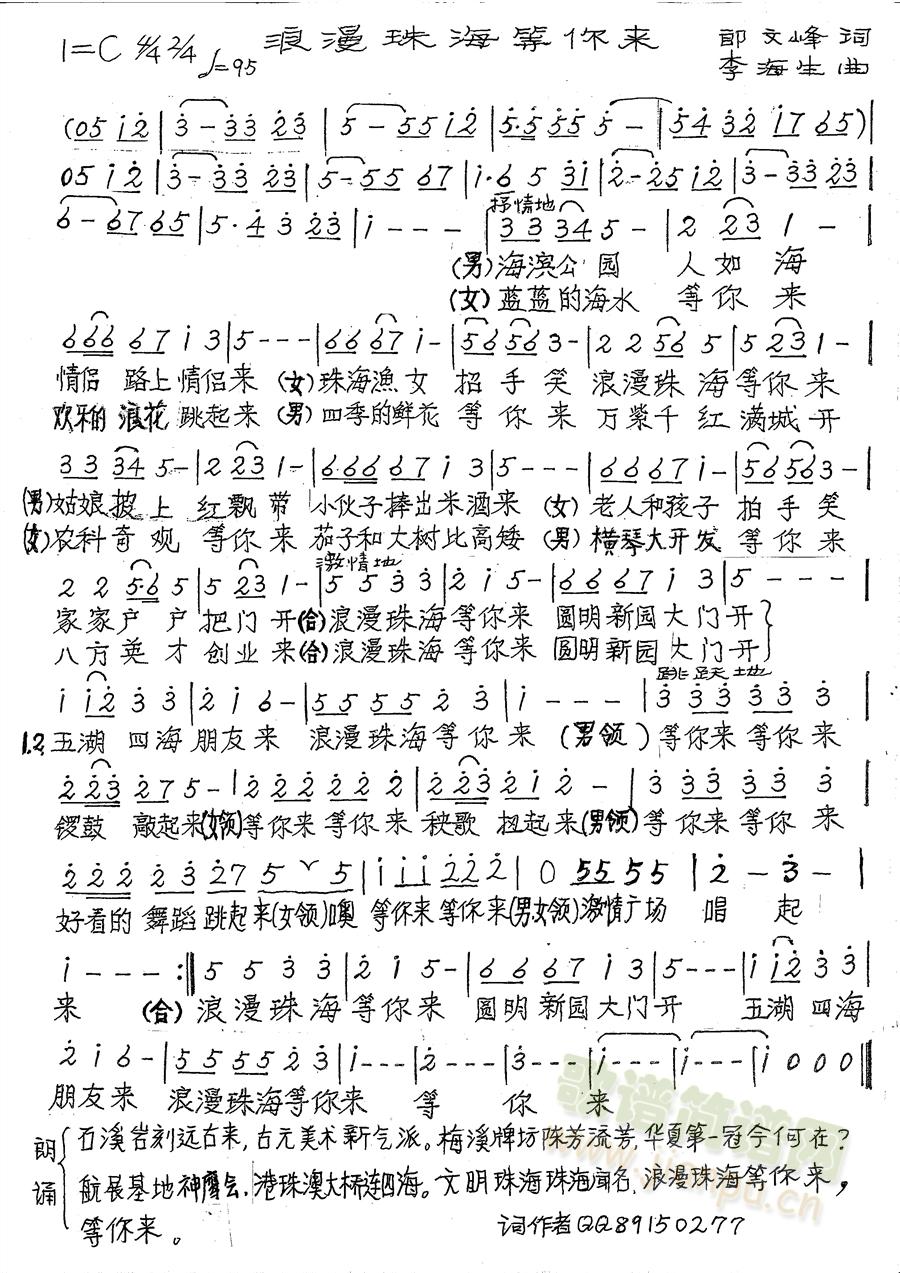 1=C 4/4 2/4 ♩=95 浪漫珠海等你来 邵文峰词
李海生曲
(05 i2 | 3 - 33 23 | 5 - 55 i2 | 5·5 55 5 - | 54 32 i7 65) |
05 i2 | 3 - 33 23 | 5 - 55 67 | i·6 5 3i | 2 - 25 i2 | 3 - 33 23 |
抒情地
6 - 67 65 | 5·4 3 23 | i - - - | 33 34 5 - | 2 23 1 - |
(男)海滨公园 人如海
(女)蓝蓝的海水 等你来
666 67 i 3 | 5 - - - | 66 67 i - | 56 56 3 - | 2 2 56 5 | 5 23 1 - |
情侣路上情侣来 (女)珠海渔女 招手笑 浪漫珠海等你来
欢乐的浪花跳起来 (男)四季的鲜花 等你来 万紫千红满城开
33 34 5 - | 2 23 1 - | 6·6 66 67 i 3 | 5 - - - | 66 67 i - | 56 56 3 - |
(男)姑娘披上 红飘带 小伙子捧出米酒来 (女)老人和孩子 拍手笑
(女)农科奇观 等你来 茄子和大树比高矮 (男)横琴大开发 等你来
激情地
2 2 5·6 5 | 5 23 1 - | 5 5 3 3 | 2 i 5 - | 66 67 i 3 | 5 - - - |
家家户户把门开(合)浪漫珠海等你来 圆明新园大门开
八方英才创业来(合)浪漫珠海等你来 圆明新园大门开
跳跃地
i i2 3 3 | 2 i 6 - | 55 55 2 3 | i - - - | 3 33 33 3 |
1.2 五湖四海朋友来 浪漫珠海等你来 (男领)等你来等你来
2 23 27 5 - | 2 22 22 2 | 2 23 2 i 2 - | 3 33 33 3 |
锣鼓敲起来(女领)等你来等你来 秧歌扭起来(男领)等你来等你来
2 22 23 27 5 ˇ 5 | i i i 22 2 | 0 55 55 | 2 - 3 - |
好看的舞蹈跳起来(女领)噢 等你来等你来(男女领)激情广场 唱起
i - - - :|| 5 5 3 3 | 2 i 5 - | 66 67 i 3 | 5 - - - | i i2 3 3 |
来 (合)浪漫珠海等你来 圆明新园大门开 五湖四海
2 i 6 - | 55 55 2 3 | i - - - | 2 - - - | 3 - - - | i - - - | i - - - | i 0 0 0 ||
朋友来 浪漫珠海等你来 等 你 来
朗诵 石溪岩刻远古来,古元美术新气派。梅溪牌坊陈芳流芳,华夏第一冠今何在?
航展基地神鹰会,港珠澳大桥连四海。文明珠海珠海闻名,浪漫珠海等你来,
等你来。 词作者QQ89150277
歌谱简谱网
www.jianpu.cn